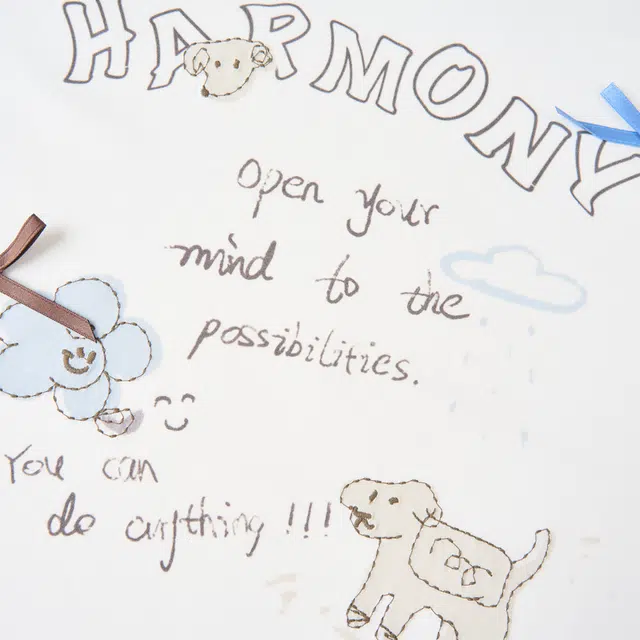 HARMONY
Open your
mind to the
possibilities.
You can
do anything !!!